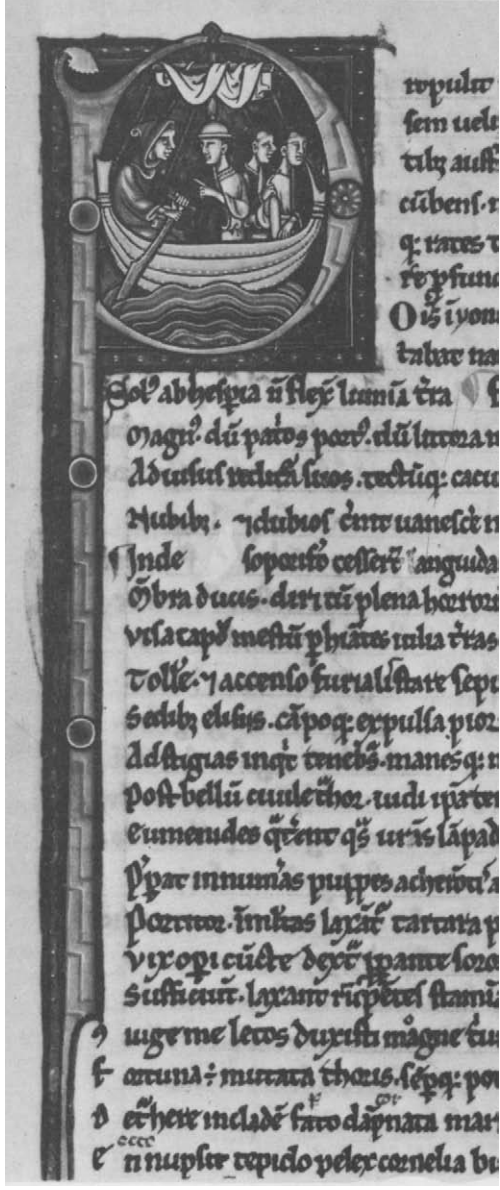 ropulit
sem uel
tibꝫ auſ
cūbenſ · m
qꝫ rates
re ꝓfund
Oīs ī yon
tabat na
Solꝰ ab heſpia n̄ flex̄ lumīa t̄ra
Magnꝰ · dū patͥos portꝰ · dū littora n
Ad uiſuſ reditā ſuos · tectūqꝫ cacu
Nubibꝫ · ⁊ dubioſ c̄nit uaneſc̄e m
Inde ſopoꝛifō ceſſer̄t languida
Mēbra ducis · diri tū plena horroris
Viſa capđ meſtū ꝑ hiātes iulia t̄ras
Tolle ·⁊ accenſo furialiſ ſtare ſepu
Sedibꝫ eliſiis · cāpoqꝫ expulſa pior
Ad ſtigias inqͥt teneb̄s · maneſqꝫ n
Poſt bellū ciuile t̄hor · uidi ip̄a ten
Eumenides q̄t̄ent q̄s ur̄is lāpad
P̄parat innum̄as puppes acherōtͥ a
Portitor · īml̄tas laxāt᷑ tartara p
Vix oꝑi cūcte dext̄ ꝓꝑante ſoro
Sufficiūt · laxant rūpētes ſtamī
9 iuge me letos duxiſti magne tri
f ortuna ÷ mutata thoris · ſēpqꝫ pot
D et̄here in cladē fato dāpnata mari
e n nupſit tepido pelex cornelia bu